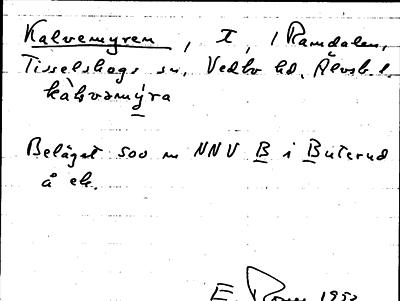 Kalvemyren, I, i Ramdalen,
Tisselskogs sn, Vedbo hd, Älvsb. l.
kàlvəmýra
Beläget 500 m NNV B i Buterud
å ek.
E. 1953